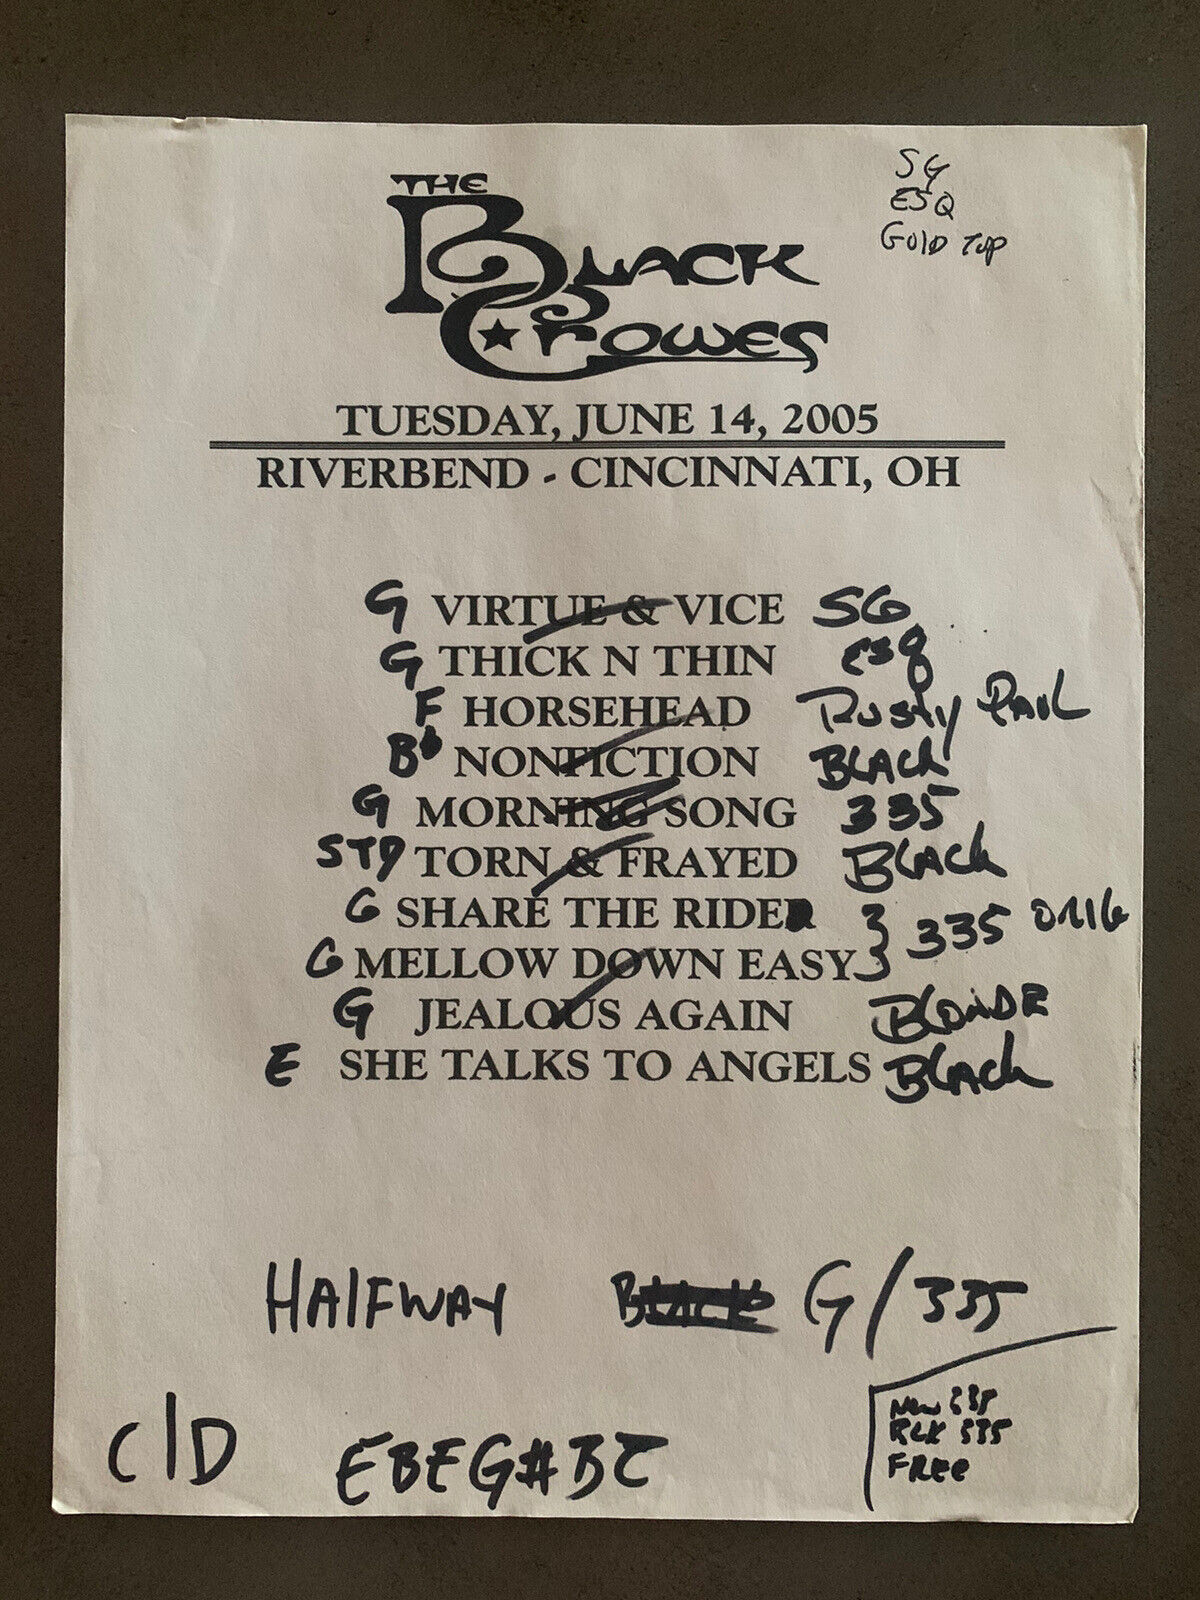 SG
ESQ
GOLD TOP
THE
BLACK
CROWES
TUESDAY, JUNE 14, 2005
RIVERBEND - CINCINNATI, OH
G VIRTUE & VICE SG
G THICK N THIN ESQ
F HORSEHEAD RUSTY PAUL
Bb NONFICTION BLACK
G MORNING SONG 335
STD TORN & FRAYED BLACK
G SHARE THE RIDE
G MELLOW DOWN EASY } 335 ORIG
G JEALOUS AGAIN BLONDE
E SHE TALKS TO ANGELS BLACK
HALFWAY BLACK G/335
NEW 335
BLK 335
FREE
C|D EBEG#BE